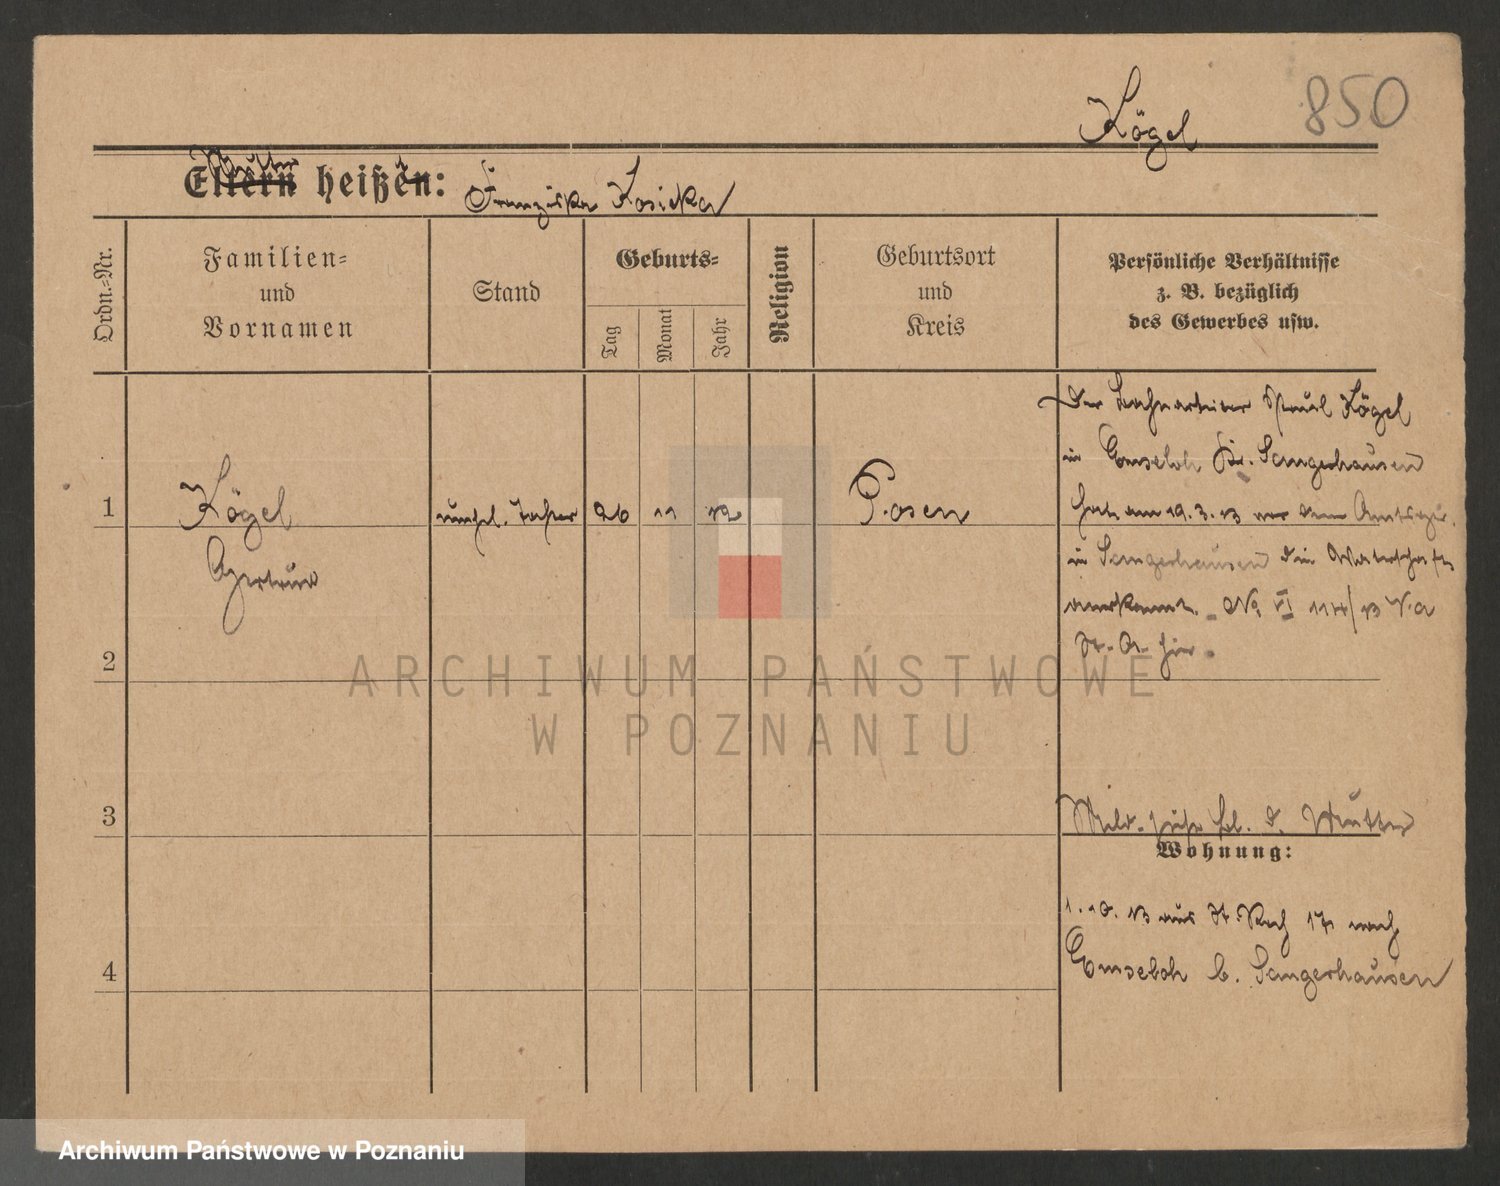 Kögel
850
Mutter
Eltern heißen:
Franziska Kosicka
Ordn.-Nr.
Familien-
und
Vornamen
Stand
Geburts-
Tag
Monat
Jahr
Religion
Geburtsort
und
Kreis
Persönliche Verhältnisse
z. B. bezüglich
des Gewerbes usw.
1
Kögel
Gertrud
unehel. Tochter
26
11
12
Posen
Der Paul Kögel
in Emseloh Kr. Sangerhausen
hat am 19.3.13 vor dem Amtsger.
in Sangerhausen die Vaterschaft
anerkannt. No VI
2
3
4
d. Mutter
Wohnung:
1.10.13 aus nach
Emseloh b. Sangerhausen
ARCHIWUM PAŃSTWOWE
W POZNANIU
Archiwum Państwowe w Poznaniu